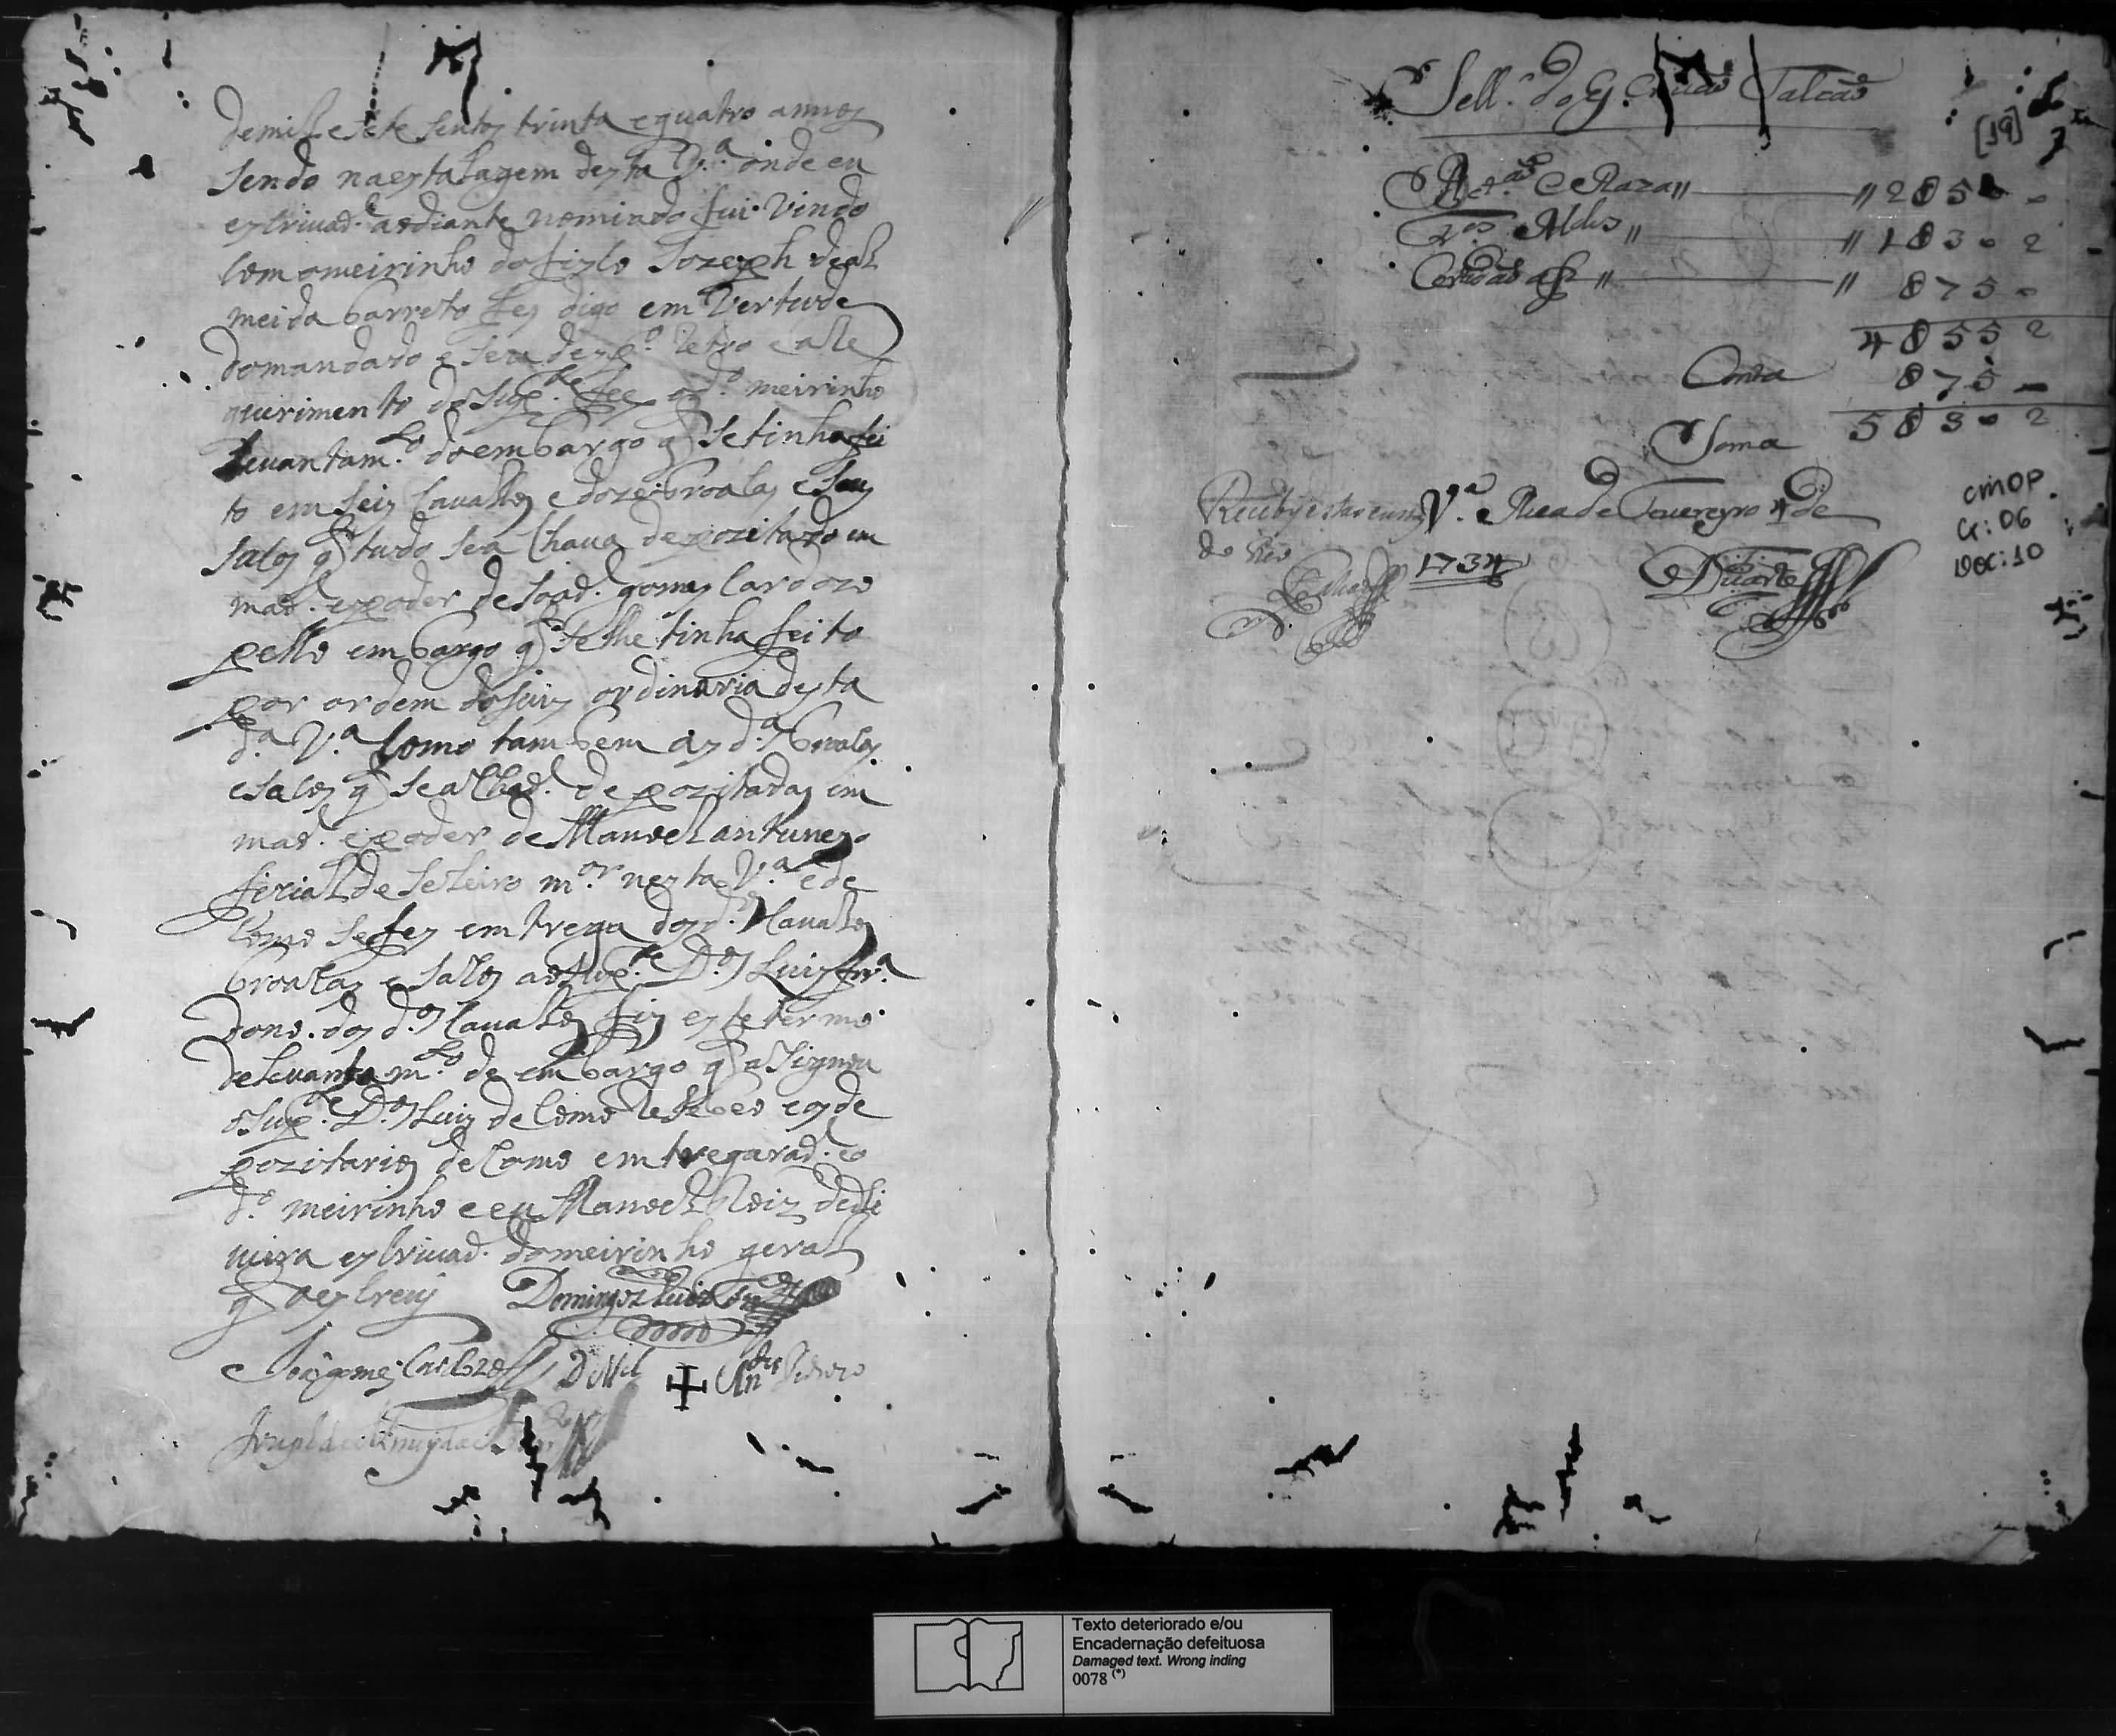 de mil e sete sentos trinta e quatro annos
sendo na estalagem desta V.ª onde eu
escrivaõ ao diante nomiado fui vindo
com o meirinho do fisco Jozeph de al
meida barreto fes digo em vertude
do mandado e seu desp.º retro e a Re
querimento do Sup.te fes o d.º meirinho
levantam.to do embargo q̃ se tinha fei
to em seis cavallos e doze broacas e seus
sacos q̃ tudo se a chava depozitado em
maõ e poder de Joaõ gomes Cardozo
pello embargo q̃ se lhe tinha feito
por ordem do Juis ordinaria desta
d.ª V.ª como tambem as d.as broacas
e sacos q̃ se achaõ depozitadas em
maõ e poder de Manoel antunes o
ficial de seleiro m.or nesta V.ª e de
como se fes emtrega dos d.os Cavallos
broacas e sacos ao Sup.te D.os Luis frr.ª
dono dos d.os Cavallos fis este termo
de levantam.to de embargo q̃ asignou
o Sup.te D.os Luis de como Recebeo e os de
pozitarios de como emtregaraõ e o
d.º meirinho e eu Manoel Roiz de oli
veira escrivaõ do meirinho geral
q̃ o escrevy Domingos Luis
Joaõ gomes Cardozo D M.el An.tus
Sell.º do
[19]
R.as e Raza // // 2850
M.dos // // 1830 2
// 875
4855 2
Conta 875
Soma 5830 2
V.ª Rica de Fevereyro 4 de
1734
Duarte
CMOP
Cx: 06
DOC: 10
Texto deteriorado e/ou
Encadernação defeituosa
Damaged text. Wrong inding
0078 (*)